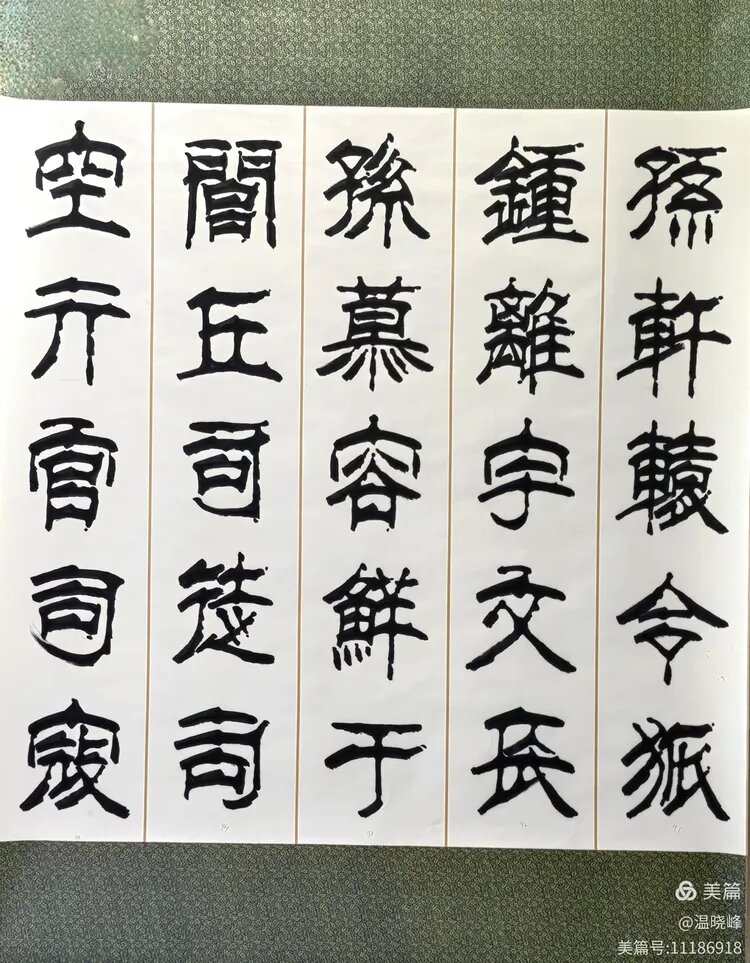 孫軒轅令狐
鍾離宇文長
孫慕容鮮于
閭丘司徒司
空亓官司寇
美篇
@温晓峰
美篇号:11186918